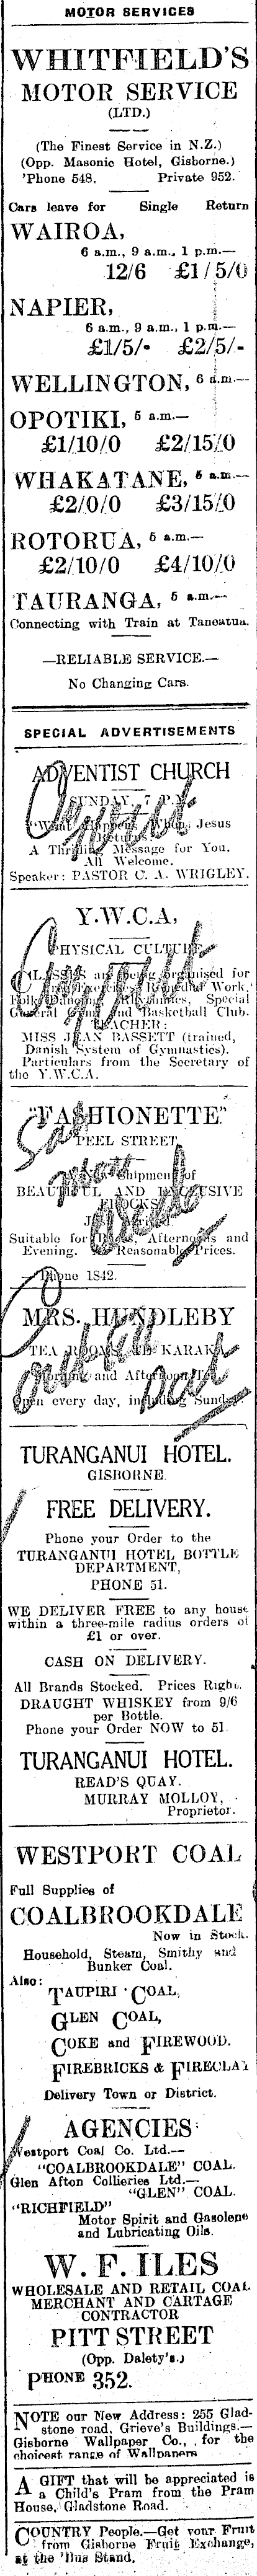 MOTOR SERVICES
WHITFIELD'S
MOTOR SERVICE
(LTD.)
(The Finest Service in N.Z.)
(Opp. Masonic Hotel, Gisborne.)
'Phone 548. Private 952.
Cars leave for Single Return
WAIROA,
6 a.m., 9 a.m., 1 p.m.—
12/6 £1/5/0
NAPIER,
6 a.m., 9 a.m., 1 p.m.—
£1/5/- £2/5/-
WELLINGTON, 6 a.m.—
OPOTIKI, 5 a.m.—
£1/10/0 £2/15/0
WHAKATANE, 5 a.m.—
£2/0/0 £3/15/0
ROTORUA, 5 a.m.—
£2/10/0 £4/10/0
TAURANGA, 5 a.m.—
Connecting with Train at Taneatua.
—RELIABLE SERVICE.—
No Changing Cars.
SPECIAL ADVERTISEMENTS
ADVENTIST CHURCH
SUNDAY, 7 P.M.
"What Happens When Jesus
Returns"
A Thrilling Message for You.
All Welcome.
Speaker: PASTOR C. A. WRIGLEY.
Y.W.C.A,
PHYSICAL CULTURE
CLASSES are being organised for
Remedial Work,
Folk Dancing, Rhythmics, Special
General Gym and Basketball Club.
TEACHER:
MISS JEAN BASSETT (trained,
Danish System of Gymnastics).
Particulars from the Secretary of
the Y.W.C.A.
"FASHIONETTE"
PEEL STREET
Shipment of
BEAUTIFUL AND EXCLUSIVE
FROCKS
Just Arrived.
Suitable for Afternoons and
Evening. Reasonable Prices.
—Phone 1842.
MRS. HUNDLEBY
TEA ROOMS, TE KARAKA.
Morning and Afternoon Tea
Open every day, including Sunday.
TURANGANUI HOTEL.
GISBORNE.
FREE DELIVERY.
Phone your Order to the
TURANGANUI HOTEL BOTTLE
DEPARTMENT,
PHONE 51.
WE DELIVER FREE to any house
within a three-mile radius orders of
£1 or over.
CASH ON DELIVERY.
All Brands Stocked. Prices Right.
DRAUGHT WHISKEY from 9/6
per Bottle.
Phone your Order NOW to 51.
TURANGANUI HOTEL.
READ'S QUAY.
MURRAY MOLLOY,
Proprietor.
WESTPORT COAL
Full Supplies of
COALBROOKDALE
Now in Stock.
Household, Steam, Smithy and
Bunker Coal.
Also:
TAUPIRI COAL,
GLEN COAL,
COKE and FIREWOOD.
FIREBRICKS & FIRECLAY
Delivery Town or District.
AGENCIES:
Westport Coal Co. Ltd.—
"COALBROOKDALE" COAL.
Glen Afton Collieries Ltd.—
"GLEN" COAL.
"RICHFIELD"
Motor Spirit and Gasolene
and Lubricating Oils.
W. F. ILES
WHOLESALE AND RETAIL COAL
MERCHANT AND CARTAGE
CONTRACTOR
PITT STREET
(Opp. Dalety's.)
PHONE 352.
NOTE our New Address: 255 Glad-
stone road, Grieve's Buildings.—
Gisborne Wallpaper Co., for the
choicest range of Wallpapers
A GIFT that will be appreciated is
a Child's Pram from the Pram
House, Gladstone Road.
COUNTRY People.—Get your Fruit
from Gisborne Fruit Exchange,
at the 'Bus Stand.